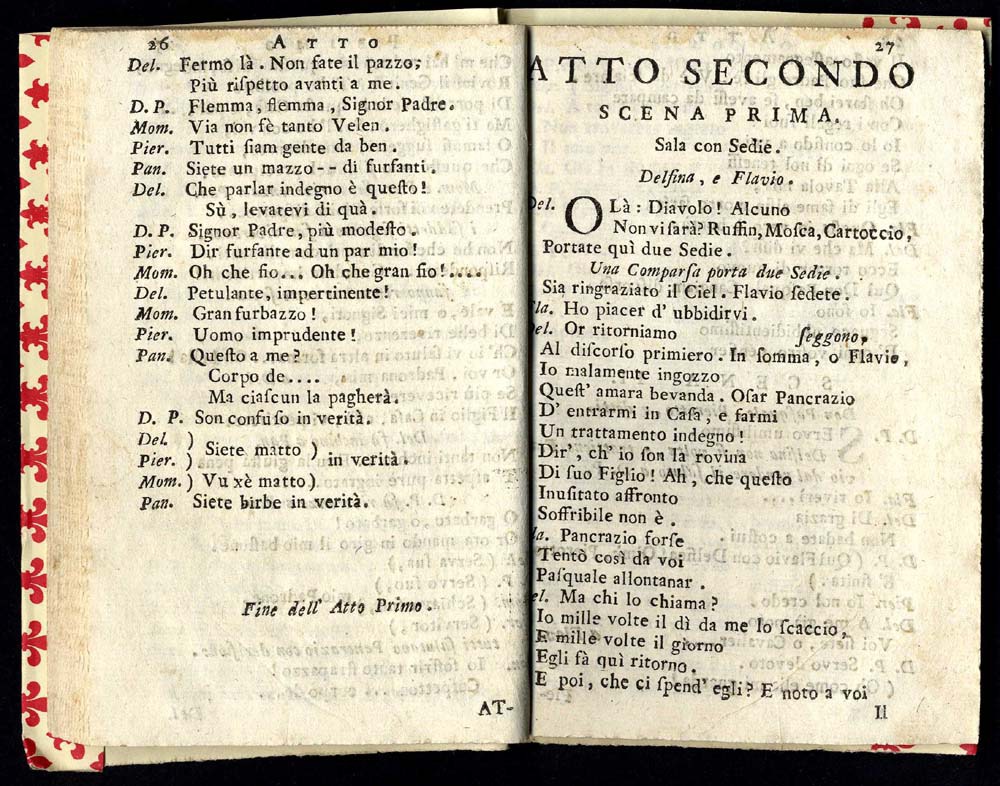 26 ATTO
Del. Fermo là. Non fate il pazzo;
Più riſpetto avanti a me.
D. P. Flemma, flemma, Signor Padre.
Mom. Via non fè tanto Velen.
Pier. Tutti ſiam gente da ben.
Pan. Siete un mazzo -- di furfanti.
Del. Che parlar indegno è queſto!
Sù, levatevi di quà.
D. P. Signor Padre, più modeſto.
Pier. Dir furfante ad un par mio!
Mom. Oh che ſio... Oh che gran ſio!....
Del. Petulante, impertinente!
Mom. Gran furbazzo!
Pier. Uomo imprudente!
Pan. Queſto a me?
Corpo de....
Ma ciaſcun la pagherà.
D. P. Son confuſo in verità.
Del. )
Siete matto )
Pier. ) in verità.
Mom. ) Vu xè matto)
Pan. Siete birbe in verità.
Fine dell' Atto Primo.
AT-
27
ATTO SECONDO
SCENA PRIMA.
Sala con Sedie.
Delfina, e Flavio.
Del. OLà: Diavolo! Alcuno
Non vi ſarà? Ruffin, Moſca, Cartoccio,
Portate quì due Sedie.
Una Comparſa porta due Sedie.
Sia ringraziato il Ciel. Flavio ſedete.
Fla. Ho piacer d' ubbidirvi.
Del. Or ritorniamo ſeggono,
Al diſcorſo primiero. In ſomma, o Flavio,
Io malamente ingozzo
Queſt' amara bevanda. Oſar Pancrazio
D' entrarmi in Caſa, e farmi
Un trattamento indegno!
Dir', ch' io ſon la rovina
Di ſuo Figlio! Ah, che queſto
Inuſitato affronto
Soffribile non è.
Fla. Pancrazio forſe
Tentò così da voi
Paſquale allontanar.
Del. Ma chi lo chiama?
Io mille volte il dì da me lo ſcaccio,
E mille volte il giorno
Egli fà quì ritorno.
E poi, che ci ſpend' egli? E noto a voi
Il